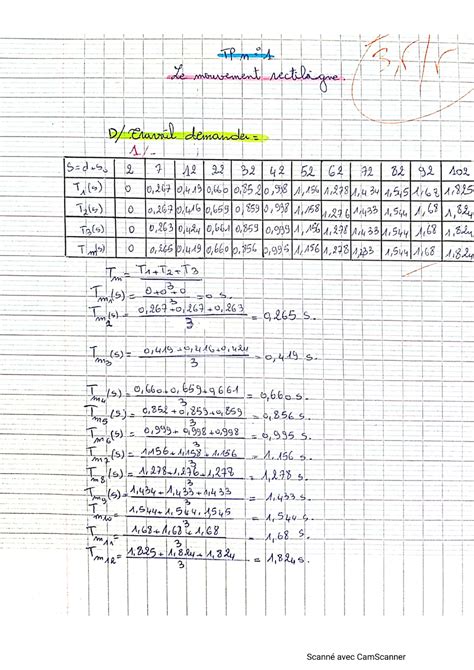 TP n°1
3,5/5
Le mouvement rectiligne.
D/ Travail demander =
1/.
S=d+S₀ 2 7 12 22 32 42 52 62 72 82 92 102
T₁(s) 0 0,267 0,419 0,660 0,852 0,998 1,156 1,278 1,434 1,545 1,67 1,825
T₂(s) 0 0,267 0,416 0,659 0,859 0,998 1,158 1,276 1,433 1,544 1,68 1,824
T₃(s) 0 0,263 0,424 0,661 0,859 0,999 1,156 1,278 1,433 1,544 1,68 1,824
Tm(s) 0 0,265 0,419 0,660 0,856 0,995 1,156 1,278 1,433 1,544 1,68 1,824
Tm = T1+T2+T3 / 3
Tm₁(s) = 0+0+0 / 3 = 0 s.
Tm₂(s) = 0,267+0,267+0,263 / 3 = 0,265 s.
Tm₃(s) = 0,419+0,416+0,424 / 3 = 0,419 s.
Tm₄(s) = 0,660+0,659+0,661 / 3 = 0,660 s.
Tm₅(s) = 0,852+0,859+0,859 / 3 = 0,856 s.
Tm₆(s) = 0,999+0,998+0,998 / 3 = 0,995 s.
Tm₇(s) = 1,156+1,158+1,156 / 3 = 1,156 s.
Tm₈(s) = 1,278+1,276+1,278 / 3 = 1,278 s.
Tm₉(s) = 1,434+1,433+1,433 / 3 = 1,433 s.
Tm₁₀ = 1,544+1,544,1,545 / 3 = 1,544 s.
Tm₁₁ = 1,68+1,68+1,68 / 3 = 1,68 s.
Tm₁₂ = 1,825+1,824+1,824 / 3 = 1,824 s.
Scanné avec CamScanner